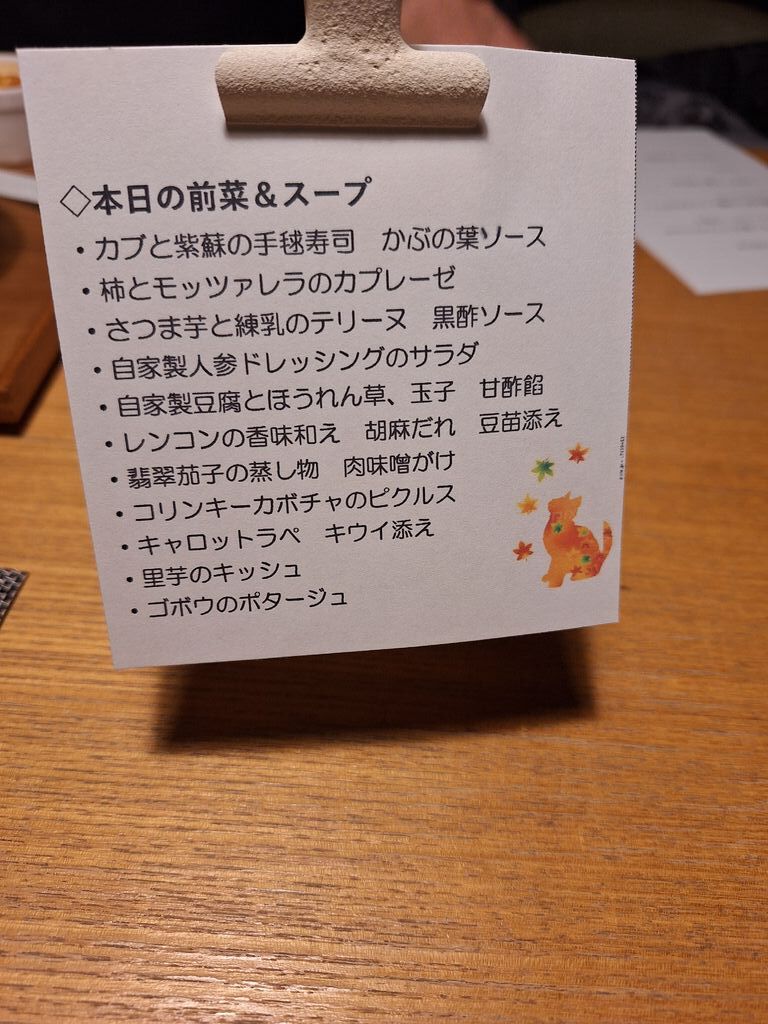 ◇本日の前菜＆スープ
・カブと紫蘇の手毬寿司　かぶの葉ソース
・柿とモッツァレラのカプレーゼ
・さつま芋と練乳のテリーヌ　黒酢ソース
・自家製人参ドレッシングのサラダ
・自家製豆腐とほうれん草、玉子　甘酢餡
・レンコンの香味和え　胡麻だれ　豆苗添え
・翡翠茄子の蒸し物　肉味噌がけ
・コリンキーカボチャのピクルス
・キャロットラペ　キウイ添え
・里芋のキッシュ
・ゴボウのポタージュ